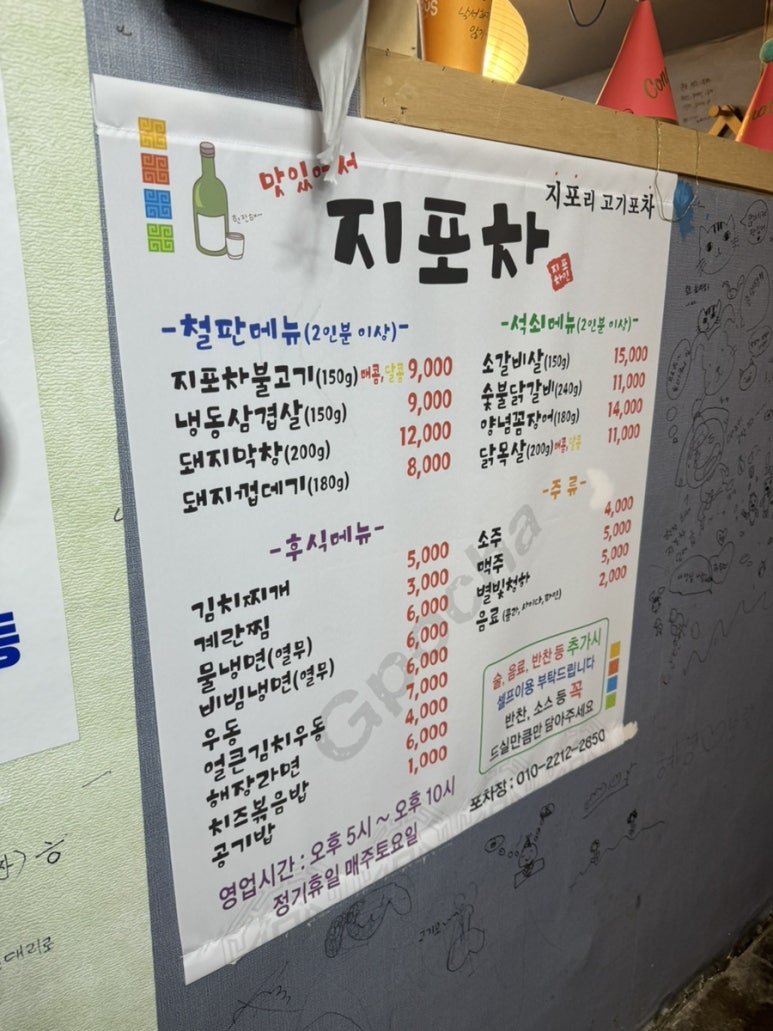 맛있어서
지포리 고기포차
지포차
지포
차인
-철판메뉴(2인분 이상)-
지포차불고기(150g) 매콤,달콤 9,000
냉동삼겹살(150g) 9,000
돼지막창(200g) 12,000
돼지껍데기(180g) 8,000
-석쇠메뉴(2인분 이상)-
소갈비살(150g) 15,000
숯불닭갈비(240g) 11,000
양념꼼장어(180g) 14,000
닭목살(200g) 매콤,달콤 11,000
-후식메뉴-
김치찌개 5,000
계란찜 3,000
물냉면(열무) 6,000
비빔냉면(열무) 6,000
우동 6,000
얼큰김치우동 7,000
해장라면 4,000
치즈볶음밥 6,000
공기밥 1,000
-주류-
소주 4,000
맥주 5,000
별빛청하 5,000
음료(콜라, 사이다, 파인) 2,000
Gpocha
술, 음료, 반찬 등 추가시
셀프이용 부탁드립니다
반찬, 소스 등 꼭
드실만큼만 담아주세요
포차장 : 010-2212-2650
영업시간 : 오후 5시 ~ 오후 10시
정기휴일 매주토요일
대리로